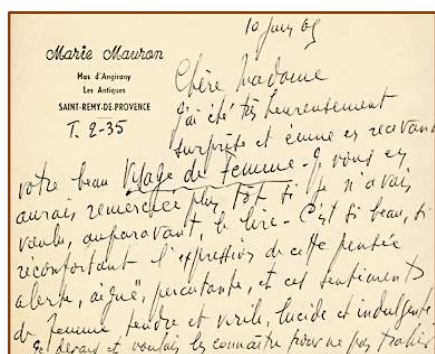 Marie Mauron
Mas d'Angirany
Les Antiques
SAINT-REMY-DE-PROVENCE
T. 2-35
10 juin 65
Chère Madame
J'ai été très heureusement
surprise et émue en recevant
votre beau Visage de Femme - Je vous en
aurais remerciée plus tôt si je n'avais
voulu, auparavant, le lire - C'est si beau, si
réconfortant l'expression de cette pensée
alerte, aiguë, percutante, et ces sentiments
de femme tendre et virile, lucide et indulgente
Je devais et voulais les connaître pour ne pas trahir